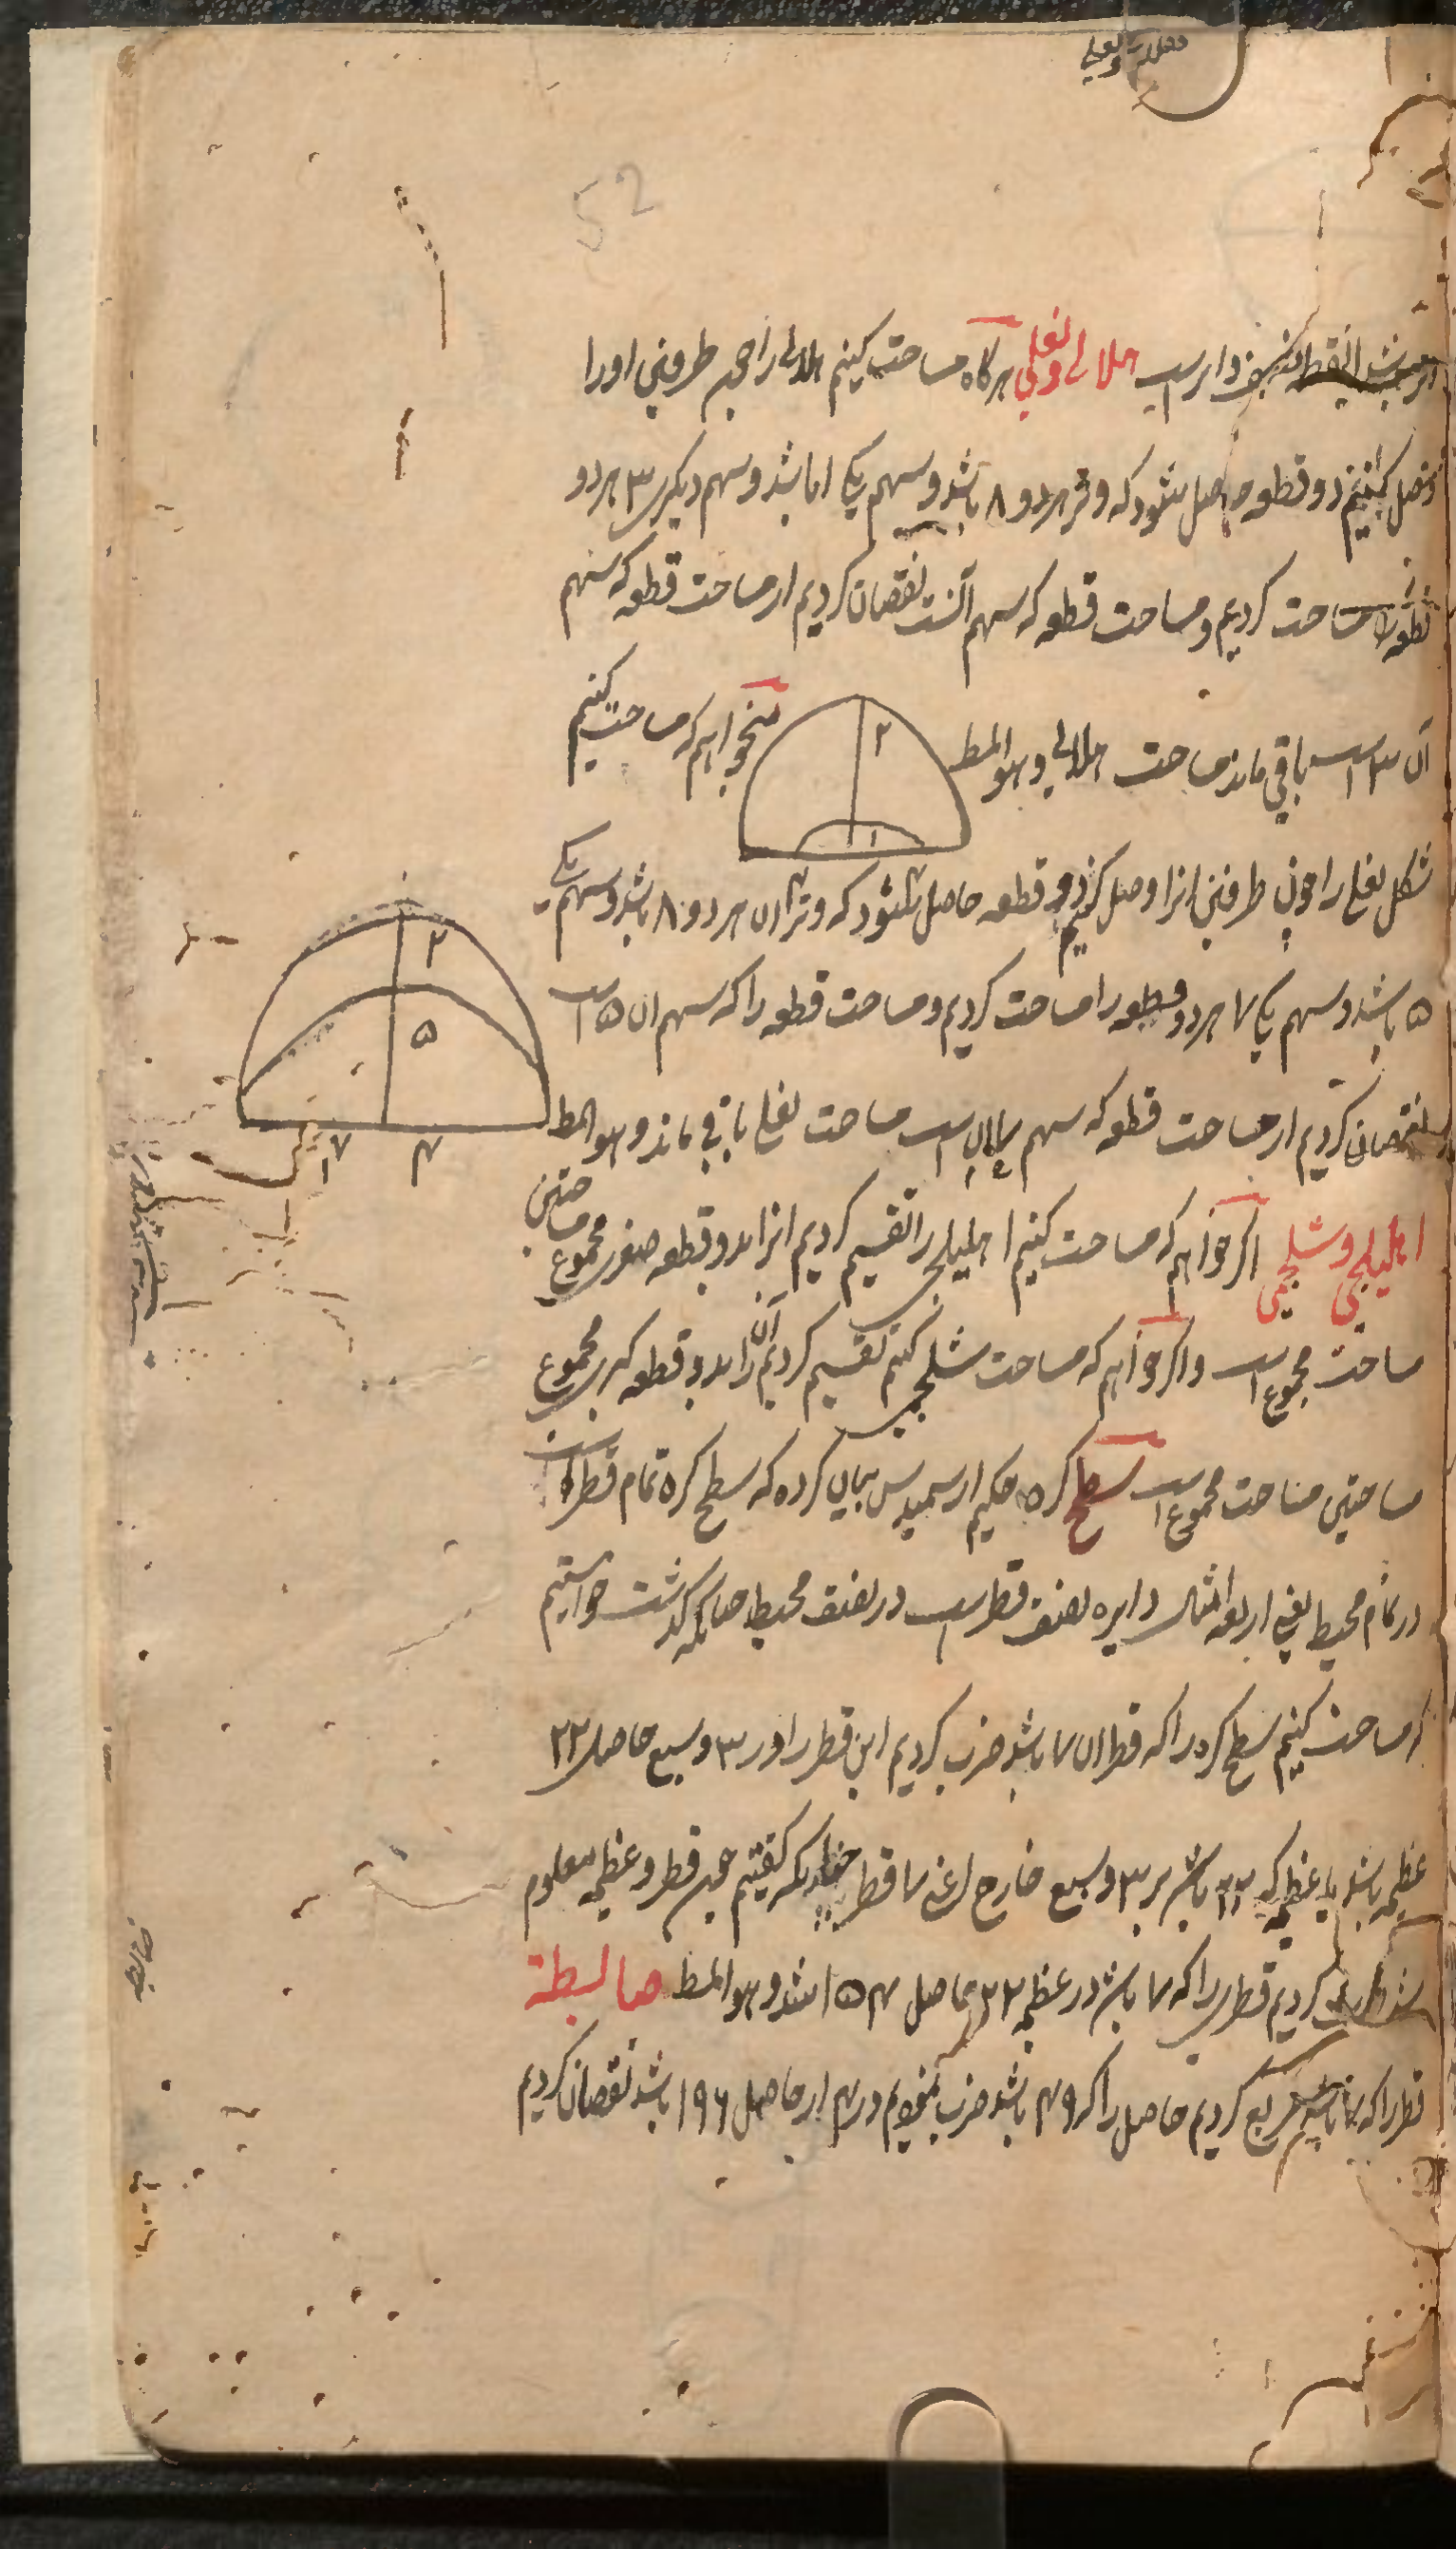 52
دایره است هلالی و نعلی هرگاه مساحت کنیم هلالی را چون طرفین او را
وصل کنیم دو قطعه حاصل شود که وتر هر دو ۸ باشد و سهم یکی ا باشد و سهم دیگری ۳ هر دو
قطعه را مساحت کردیم و مساحت قطعه که سهم آنست نقصان کردیم از مساحت قطعه که سهم
آن ۳ است باقی ماند مساحت هلالی و هو المط میخواهم که مساحت کنیم
۲
۱
شکل نعلی را چون طرفین انرا وصل کنیم دو قطعه حاصل میشود که وتر ان هر دو ۸ باشد و سهم یکی
۵ باشد و سهم یکی ۷ هر دو قطعه را مساحت کردیم و مساحت قطعه را که سهم ان ۵ است
۲
۵
نقصان کردیم از مساحت قطعه که سهم ان است مساحت نعلی باقی ماند و هو المط
۷ ۴
اهلیلجی و شلجمی اگر خواهم که مساحت کنیم اهلیلجی را تقسیم کردیم انرا بدو قطعه صغری مجموع مساحتین
مساحت مجموع است و اگر خواهم که مساحت شلجمی کنیم تقسیم کردیم آن را بدو قطعه کبری مجموع
مساحتین مساحت مجموع است سطح کره حکیم ارسمیدس بیان کرده که سطح کره تمام قطر است
در تمام محیط یعنی اربعه امثال دایره نصف قطر است در نصف محیط چنانکه گذشت خواستیم
که مساحت کنیم سطح کره را که قطر ان ۷ باشد ضرب کردیم این قطر را در ۳ و سبع حاصل ۲۲
عظیمه باشد یا عظیمه که ۲۲ باشد بر ۳ و سبع خارج اعنی ۷ قطر گفتیم چون قطر و عظیمه معلوم
شد ضرب کردیم قطر را که ۷ باشد در عظیمه ۲۲ حاصل ۱۵۴ شد و هو المط ضابطة
قطر را که ۷ باشد مربع کردیم حاصل را که ۴۹ باشد ضرب نمودیم در ۴ از حاصل ۱۹۶ باشد نقصان کردیم